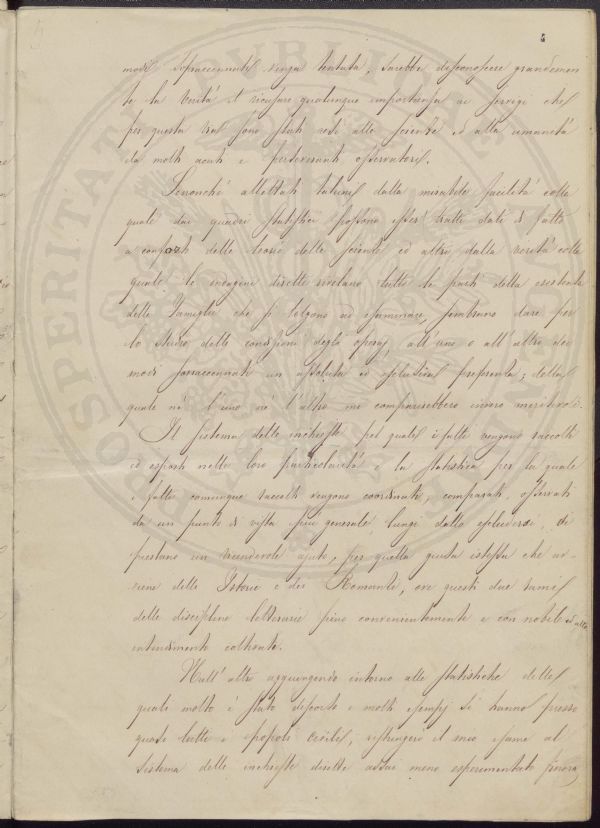 5
modi sopraccennati venga tentata, sarebbe disconoscere grandemen
te la verità il ricusare qualunque importanza ai servigi che
per questa via sono stati resi alle scienze ed alla umanità
da molti acuti e perseveranti osservatori.
Sennonché allettati taluni dalla mirabile facilità colla
quale dai quadri statistici possono esser tratti dati di fatto
a conforti delle teorie delle scienze ed altri dalla verità colla
quale le indagini dirette rivelano tutte le parti della esistenza
delle Famiglie che si tolgono ad esaminare, sembrano dare per
lo studio delle condizioni degli operaj, all'uno o all'altro dei
modi sovraccennati un assoluta ed esclusiva preferenza; della
quale nè l'uno nè l'altro mi comparirebbero invero meritevoli.
Il sistema delle inchieste pel quale i fatti vengono raccolti
ed esposti nelle loro particolarità e la statistica per la quale
i fatti comunque raccolti vengono coordinati, comparati, osservati
da un punto di vista più generale, lungi dallo escludersi, si
prestano un vicendevole ajuto, per quella guisa istessa che av-
viene delle Istorie e dei Romanzi, ove questi due rami
delle discipline letterarie sieno convenientemente e con nobile ed alto
intendimento coltivate.
Null'altro aggiungendo intorno alle statistiche delle
quali molto è stato discorso e molti esempj si hanno presso
quasi tutti i popoli civili, restringerò il mio esame al
sistema delle inchieste dirette assai meno esperimentato finora
PROSPERITATI PUBLICAE